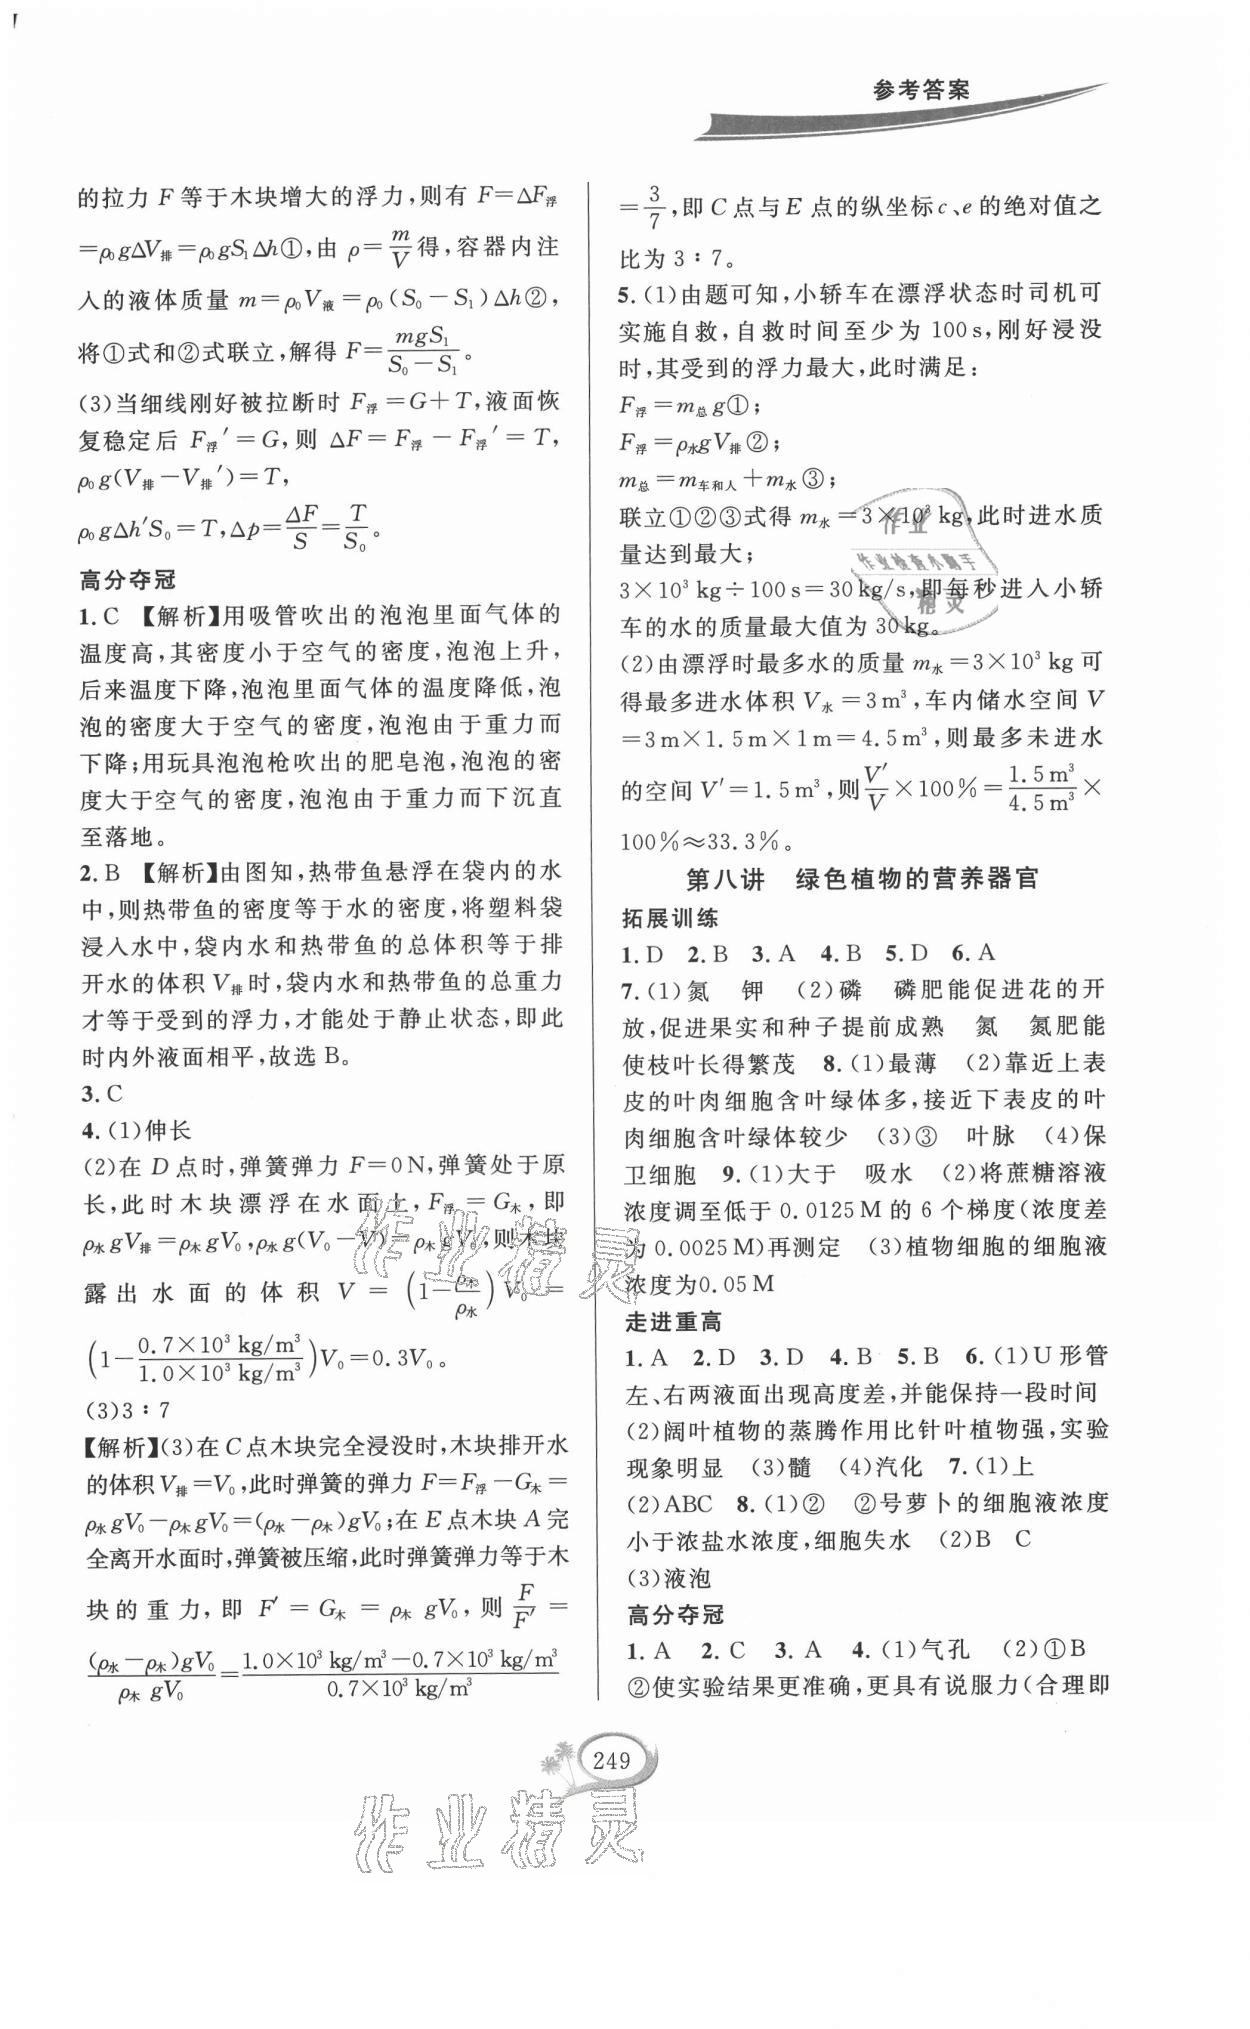 参考答案
的拉力 F 等于木块增大的浮力,则有 F=ΔF浮
=ρ₀gΔV排=ρ₀gS₁Δh①,由 ρ=m/V得,容器内注
入的液体质量 m=ρ₀V液=ρ₀(S₀-S₁)Δh②,
将①式和②式联立,解得 F=mgS₁/(S₀-S₁)。
(3)当细线刚好被拉断时 F浮=G+T,液面恢
复稳定后 F浮′=G,则 ΔF=F浮-F浮′=T,
ρ₀g(V排-V排′)=T,
ρ₀gΔh′S₀=T,Δp=ΔF/S=T/S₀。
高分夺冠
1.C 【解析】用吸管吹出的泡泡里面气体的
温度高,其密度小于空气的密度,泡泡上升,
后来温度下降,泡泡里面气体的温度降低,泡
泡的密度大于空气的密度,泡泡由于重力而
下降;用玩具泡泡枪吹出的肥皂泡,泡泡的密
度大于空气的密度,泡泡由于重力而下沉直
至落地。
2.B 【解析】由图知,热带鱼悬浮在袋内的水
中,则热带鱼的密度等于水的密度,将塑料袋
浸入水中,袋内水和热带鱼的总体积等于排
开水的体积 V排时,袋内水和热带鱼的总重力
才等于受到的浮力,才能处于静止状态,即此
时内外液面相平,故选 B。
3.C
4.(1)伸长
(2)在 D 点时,弹簧弹力 F=0 N,弹簧处于原
长,此时木块漂浮在水面上,F浮=G木,即
ρ水gV排=ρ木gV₀,ρ水g(V₀-V)=ρ木gV₀,则木块
露出水面的体积 V=(1-ρ木/ρ水)V₀=
(1-0.7×10³ kg/m³/1.0×10³ kg/m³)V₀=0.3V₀。
(3)3∶7
【解析】(3)在 C 点木块完全浸没时,木块排开水
的体积 V排=V₀,此时弹簧的弹力 F=F浮-G木=
ρ水gV₀-ρ木gV₀=(ρ水-ρ木)gV₀;在 E 点木块 A 完
全离开水面时,弹簧被压缩,此时弹簧弹力等于木
块的重力,即 F′=G木=ρ木gV₀,则F/F′=
(ρ水-ρ木)gV₀/ρ木gV₀=1.0×10³ kg/m³-0.7×10³ kg/m³/0.7×10³ kg/m³
=3/7,即 C 点与 E 点的纵坐标 c、e 的绝对值之
比为 3∶7。
5.(1)由题可知,小轿车在漂浮状态时司机可
实施自救,自救时间至少为 100 s,刚好浸没
时,其受到的浮力最大,此时满足:
F浮=m总g①;
F浮=ρ水gV排②;
m总=m车和人+m水③;
联立①②③式得 m水=3×10³ kg,此时进水质
量达到最大;
3×10³ kg÷100 s=30 kg/s,即每秒进入小轿
车的水的质量最大值为 30 kg。
(2)由漂浮时最多水的质量 m水=3×10³ kg 可
得最多进水体积 V水=3 m³,车内储水空间 V
=3 m×1.5 m×1 m=4.5 m³,则最多未进水
的空间 V′=1.5 m³,则V′/V×100%=1.5 m³/4.5 m³×
100%≈33.3%。
第八讲 绿色植物的营养器官
拓展训练
1.D 2.B 3.A 4.B 5.D 6.A
7.(1)氮 钾 (2)磷 磷肥能促进花的开
放,促进果实和种子提前成熟 氮 氮肥能
使枝叶长得繁茂 8.(1)最薄 (2)靠近上表
皮的叶肉细胞含叶绿体多,接近下表皮的叶
肉细胞含叶绿体较少 (3)③ 叶脉 (4)保
卫细胞 9.(1)大于 吸水 (2)将蔗糖溶液
浓度调至低于 0.0125 M 的 6 个梯度(浓度差
为 0.0025 M)再测定 (3)植物细胞的细胞液
浓度为0.05 M
走进重高
1.A 2.D 3.D 4.B 5.B 6.(1)U 形管
左、右两液面出现高度差,并能保持一段时间
(2)阔叶植物的蒸腾作用比针叶植物强,实验
现象明显 (3)髓 (4)汽化 7.(1)上
(2)ABC 8.(1)② ②号萝卜的细胞液浓度
小于浓盐水浓度,细胞失水 (2)B C
(3)液泡
高分夺冠
1.A 2.C 3.A 4.(1)气孔 (2)①B
②使实验结果更准确,更具有说服力(合理即
249
作业
作业检查小助手
精灵
作业精灵
作业精灵